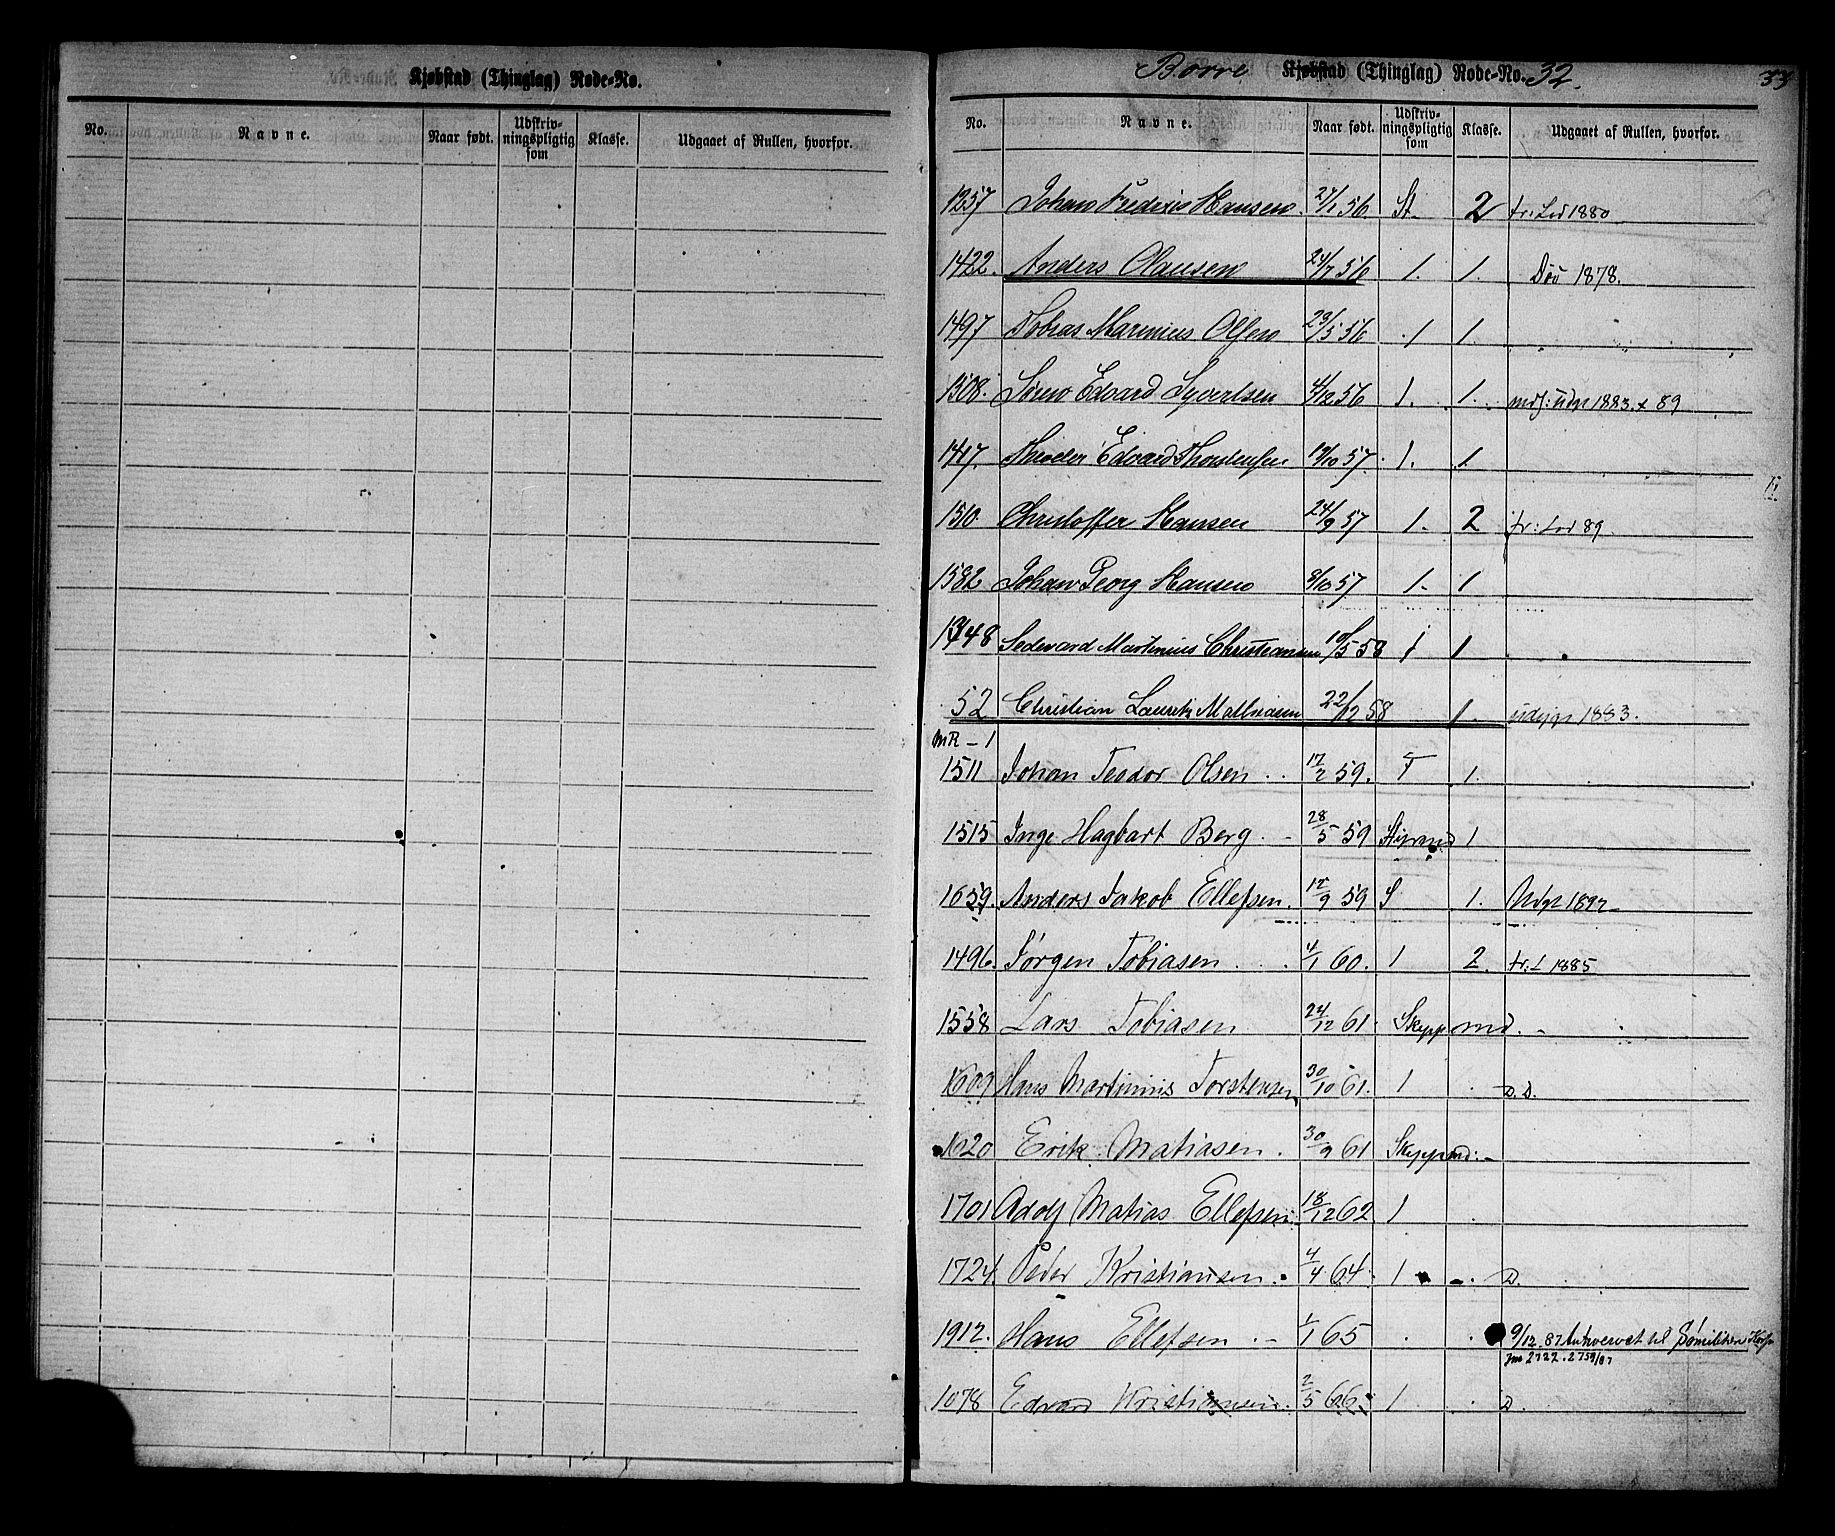 Kjøbstad (Thinglag) Rode-No.
No. Navne. Naar født. Udskriv-ningspligtig som Klasse. Udgaaet af Rullen, hvorfor.
Borre Kjøbstad (Thinglag) Rode-No. 32. 33
No. Navne. Naar født. Udskriv-ningspligtig som Klasse. Udgaaet af Rullen, hvorfor.
1257 Johan Fredrik Hansen 24/1 56 St. 2 fr: Lod 1880
1422. Anders Olausen 24/7 56 1. 1. Död 1878.
1497 Tobias Marinius Olsen 23/5 56 1 1.
1508. Edvard Syvertsen 4/12 56 1. 1. mdj: udgt 1883. + 89
1417. Theodor Edvard Thorstensen 19/10 57. 1. 1.
1510. Christoffer Hansen 24/9 57 1. 2 fr: Lod 89
1582 Johan Georg Hansen 8/10 57 1. 1
48 Sedevard Martinius Christiansen 10/5 58 1 1
52 Christian Lauritz Mathiasen 22/12 58 1. udgt 1883.
MR - 1
1511 Johan Teodor Olsen 17/2 59. T 1.
1515 Inge Hagbart Berg. 28/5 59 Styrmd 1
1659. Anders Jakob Ellefsen. 12/9 59 S 1. Udgt 1897
1496. Jørgen Tobiasen 4/1 60. 1 2. fr: L 1885
1558 Lars Tobiasen 24/12 61. Skypp md.
1609 Hans Martinius Torstensen 30/10 61. 1 D. D.
1620 Erik Matiasen. 30/9 61 Skyppmd:
1701 Adolf Matias Ellefsen 18/12 62 1
1724 Peder Kristiansen. 4/4 64. 1 D.
1912. Hans Ellefsen 1/1 65 9/12. 87 til Sømilitære Korps
Jm 2722. 2759/87
1078 Edvard Kristiansen. 2/5 66. 1 D.